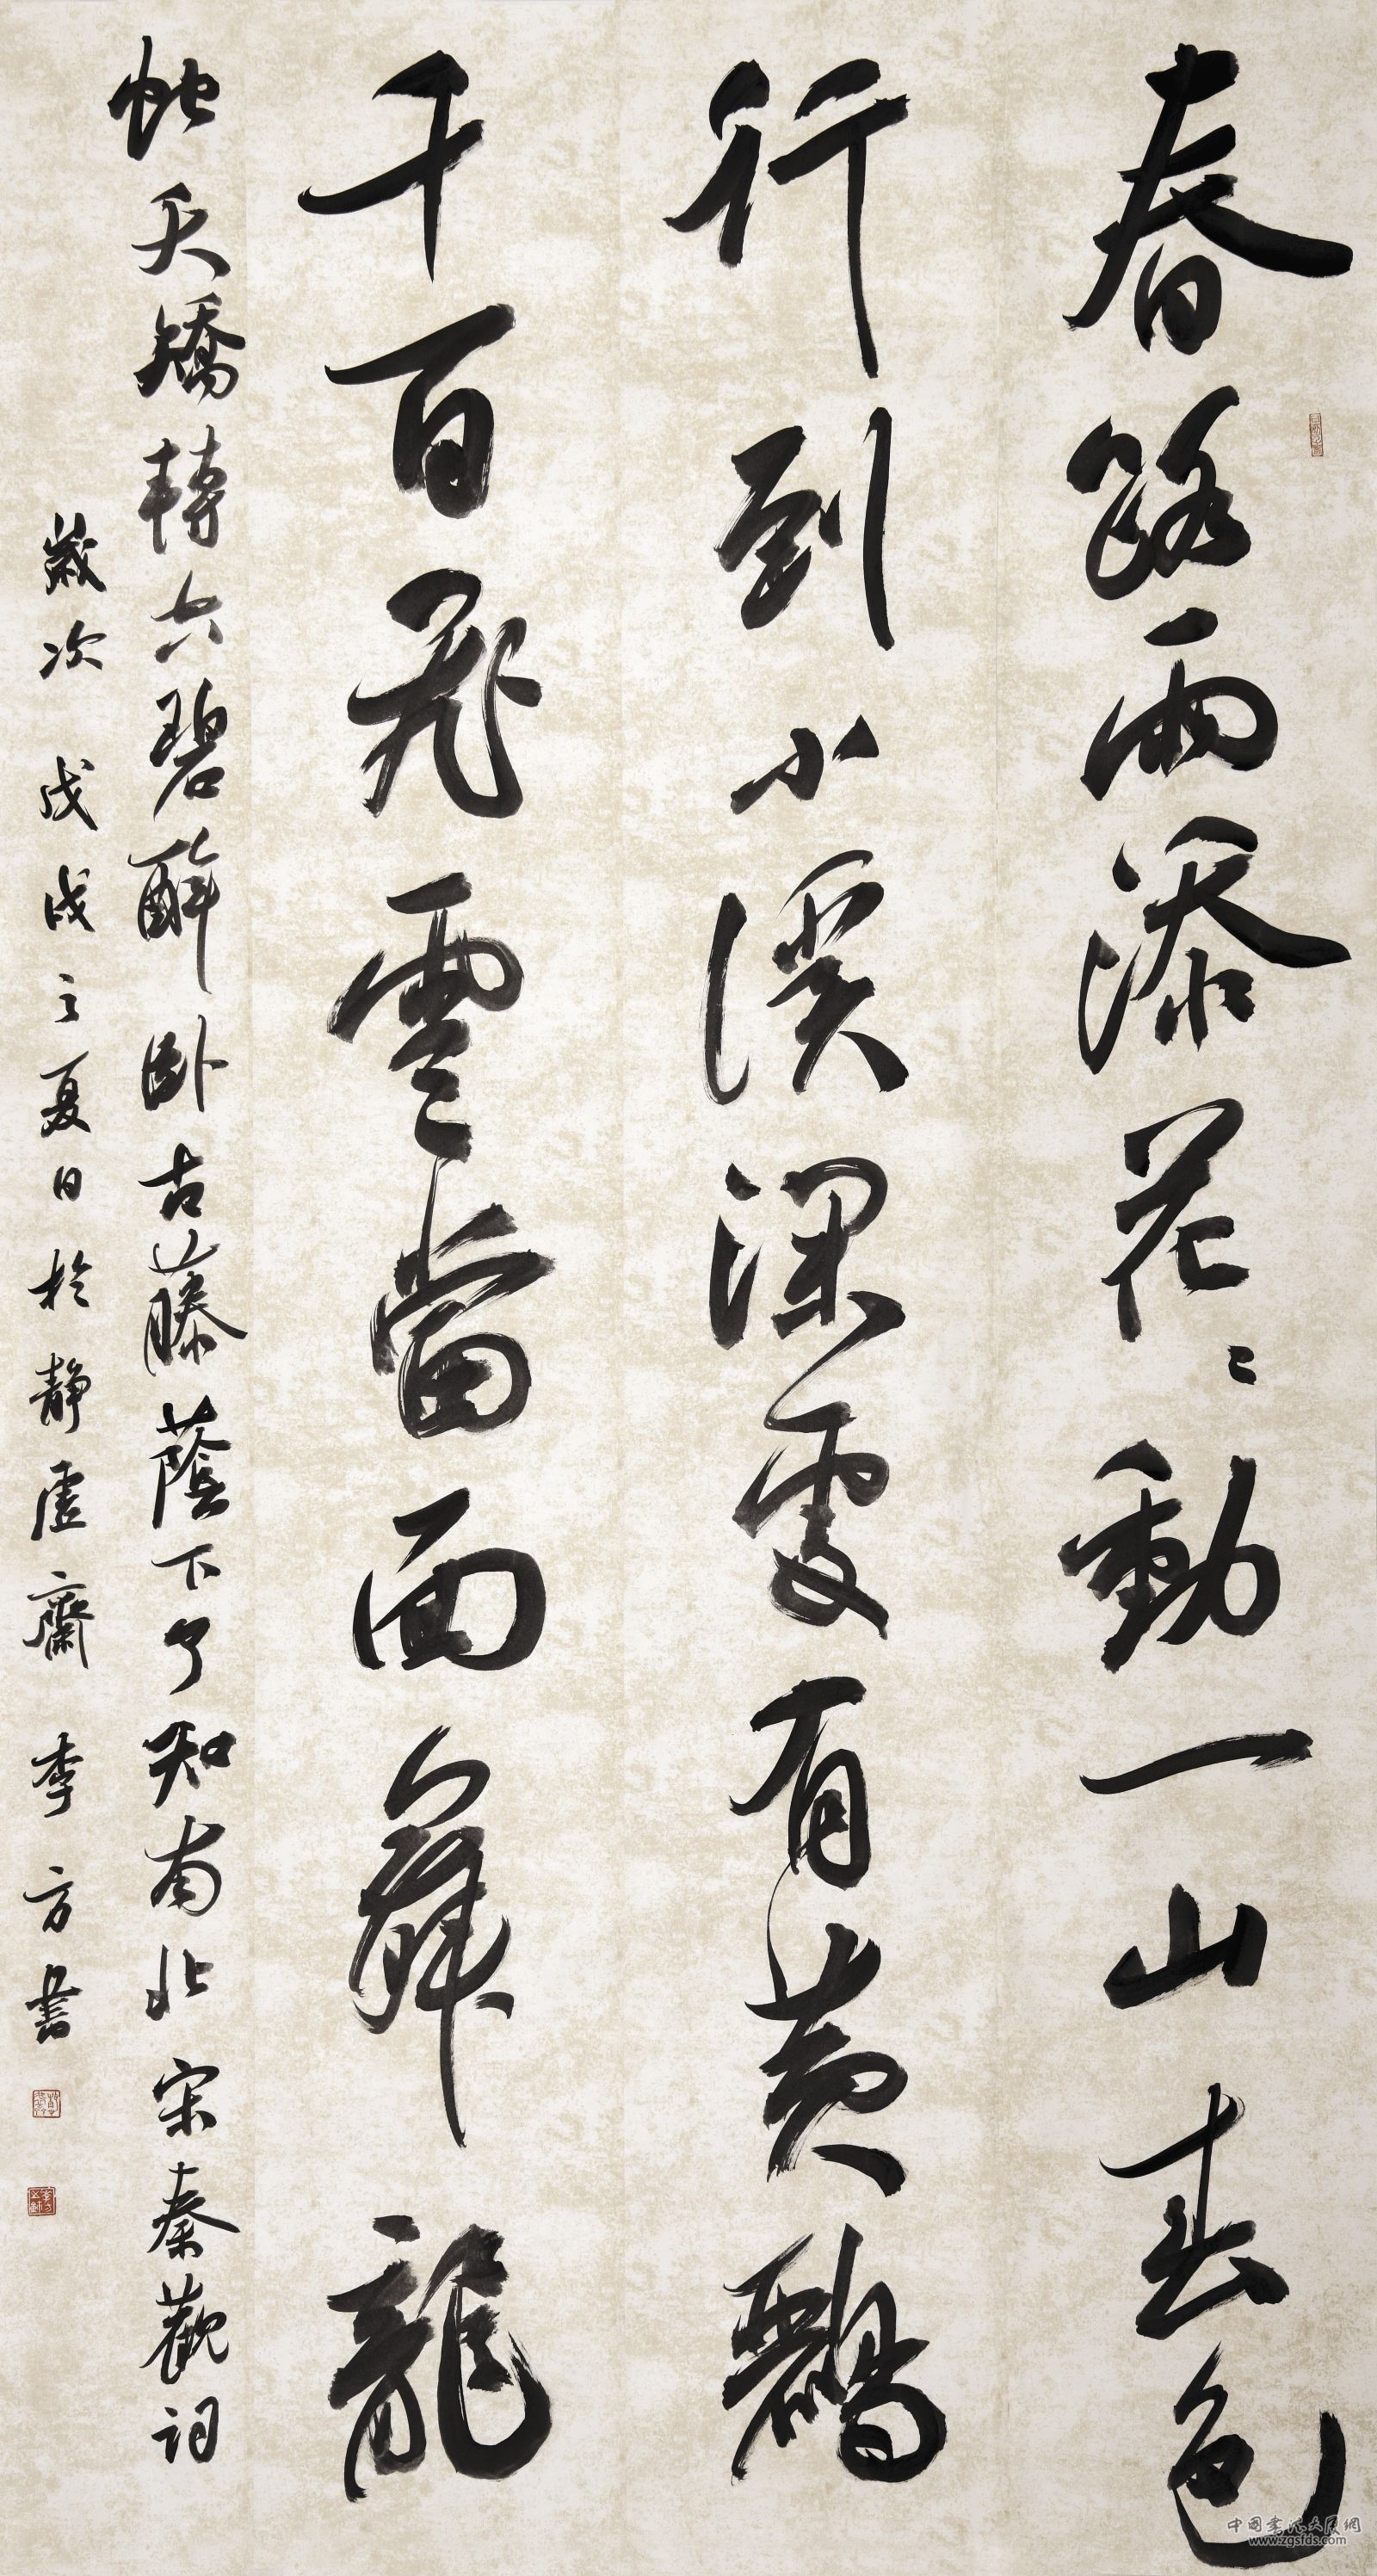 春路雨添花〻動一山春色
行到小溪深處有黃鸝
千百飛雲當面舞龍
蛇夭矯轉空碧醉卧古藤蔭下了知南北宋秦觀詞
歲次戊戌之夏日於靜虛齋李方書
中国书法大展網
www.zgsfds.com